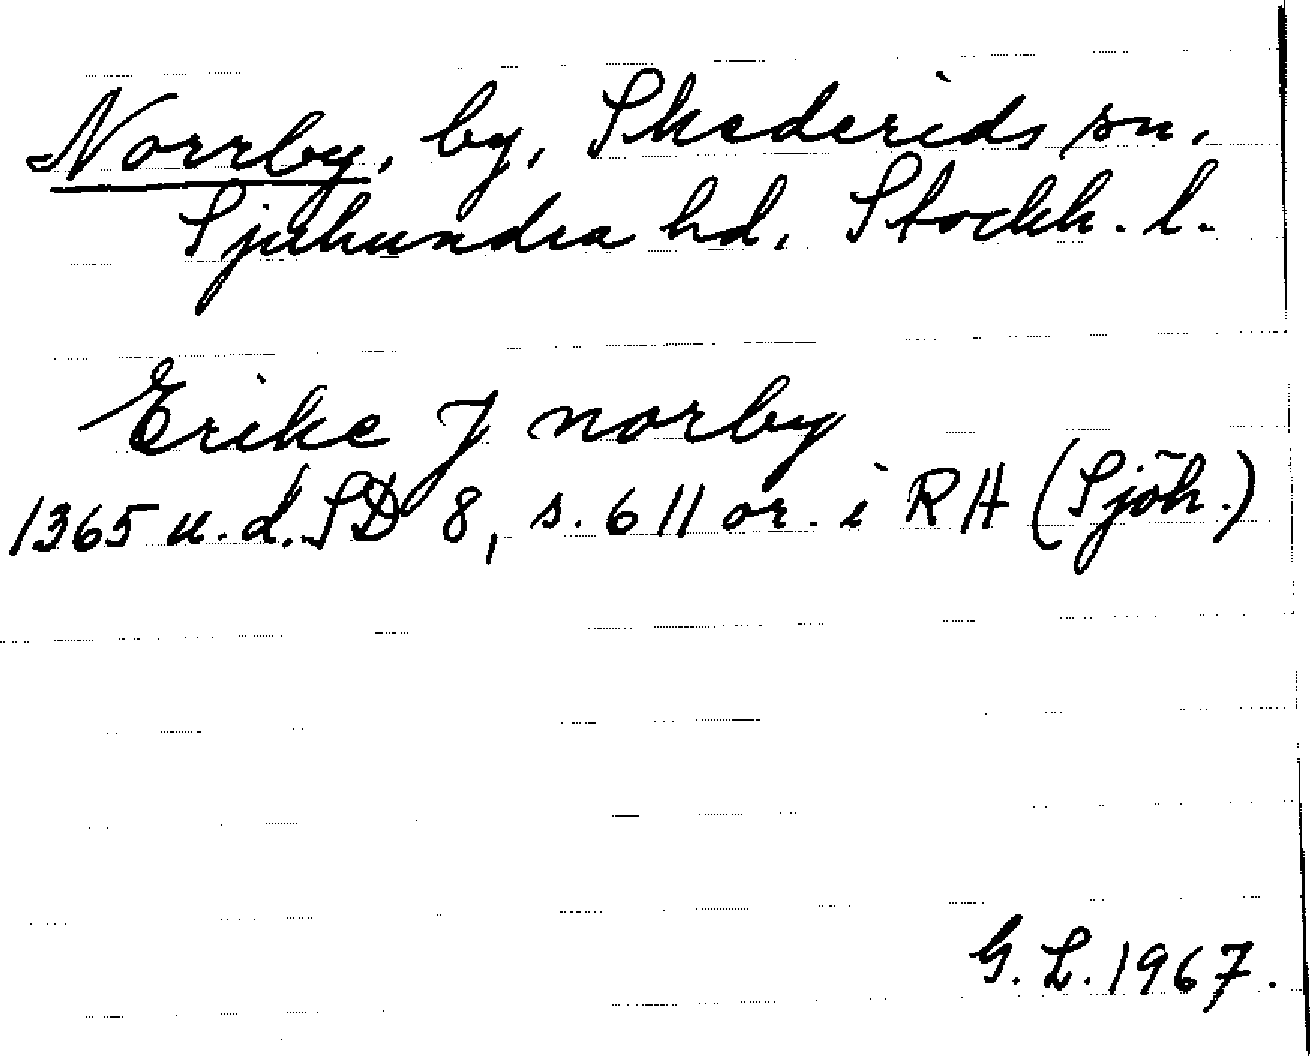 Norrby, by, Skederids sn,
Sjuhundra hd, Stockh. l.
Erike J norby
1365 u.d. SD 8, s. 611 or. i RH (Sjöh.)
G. L. 1967.